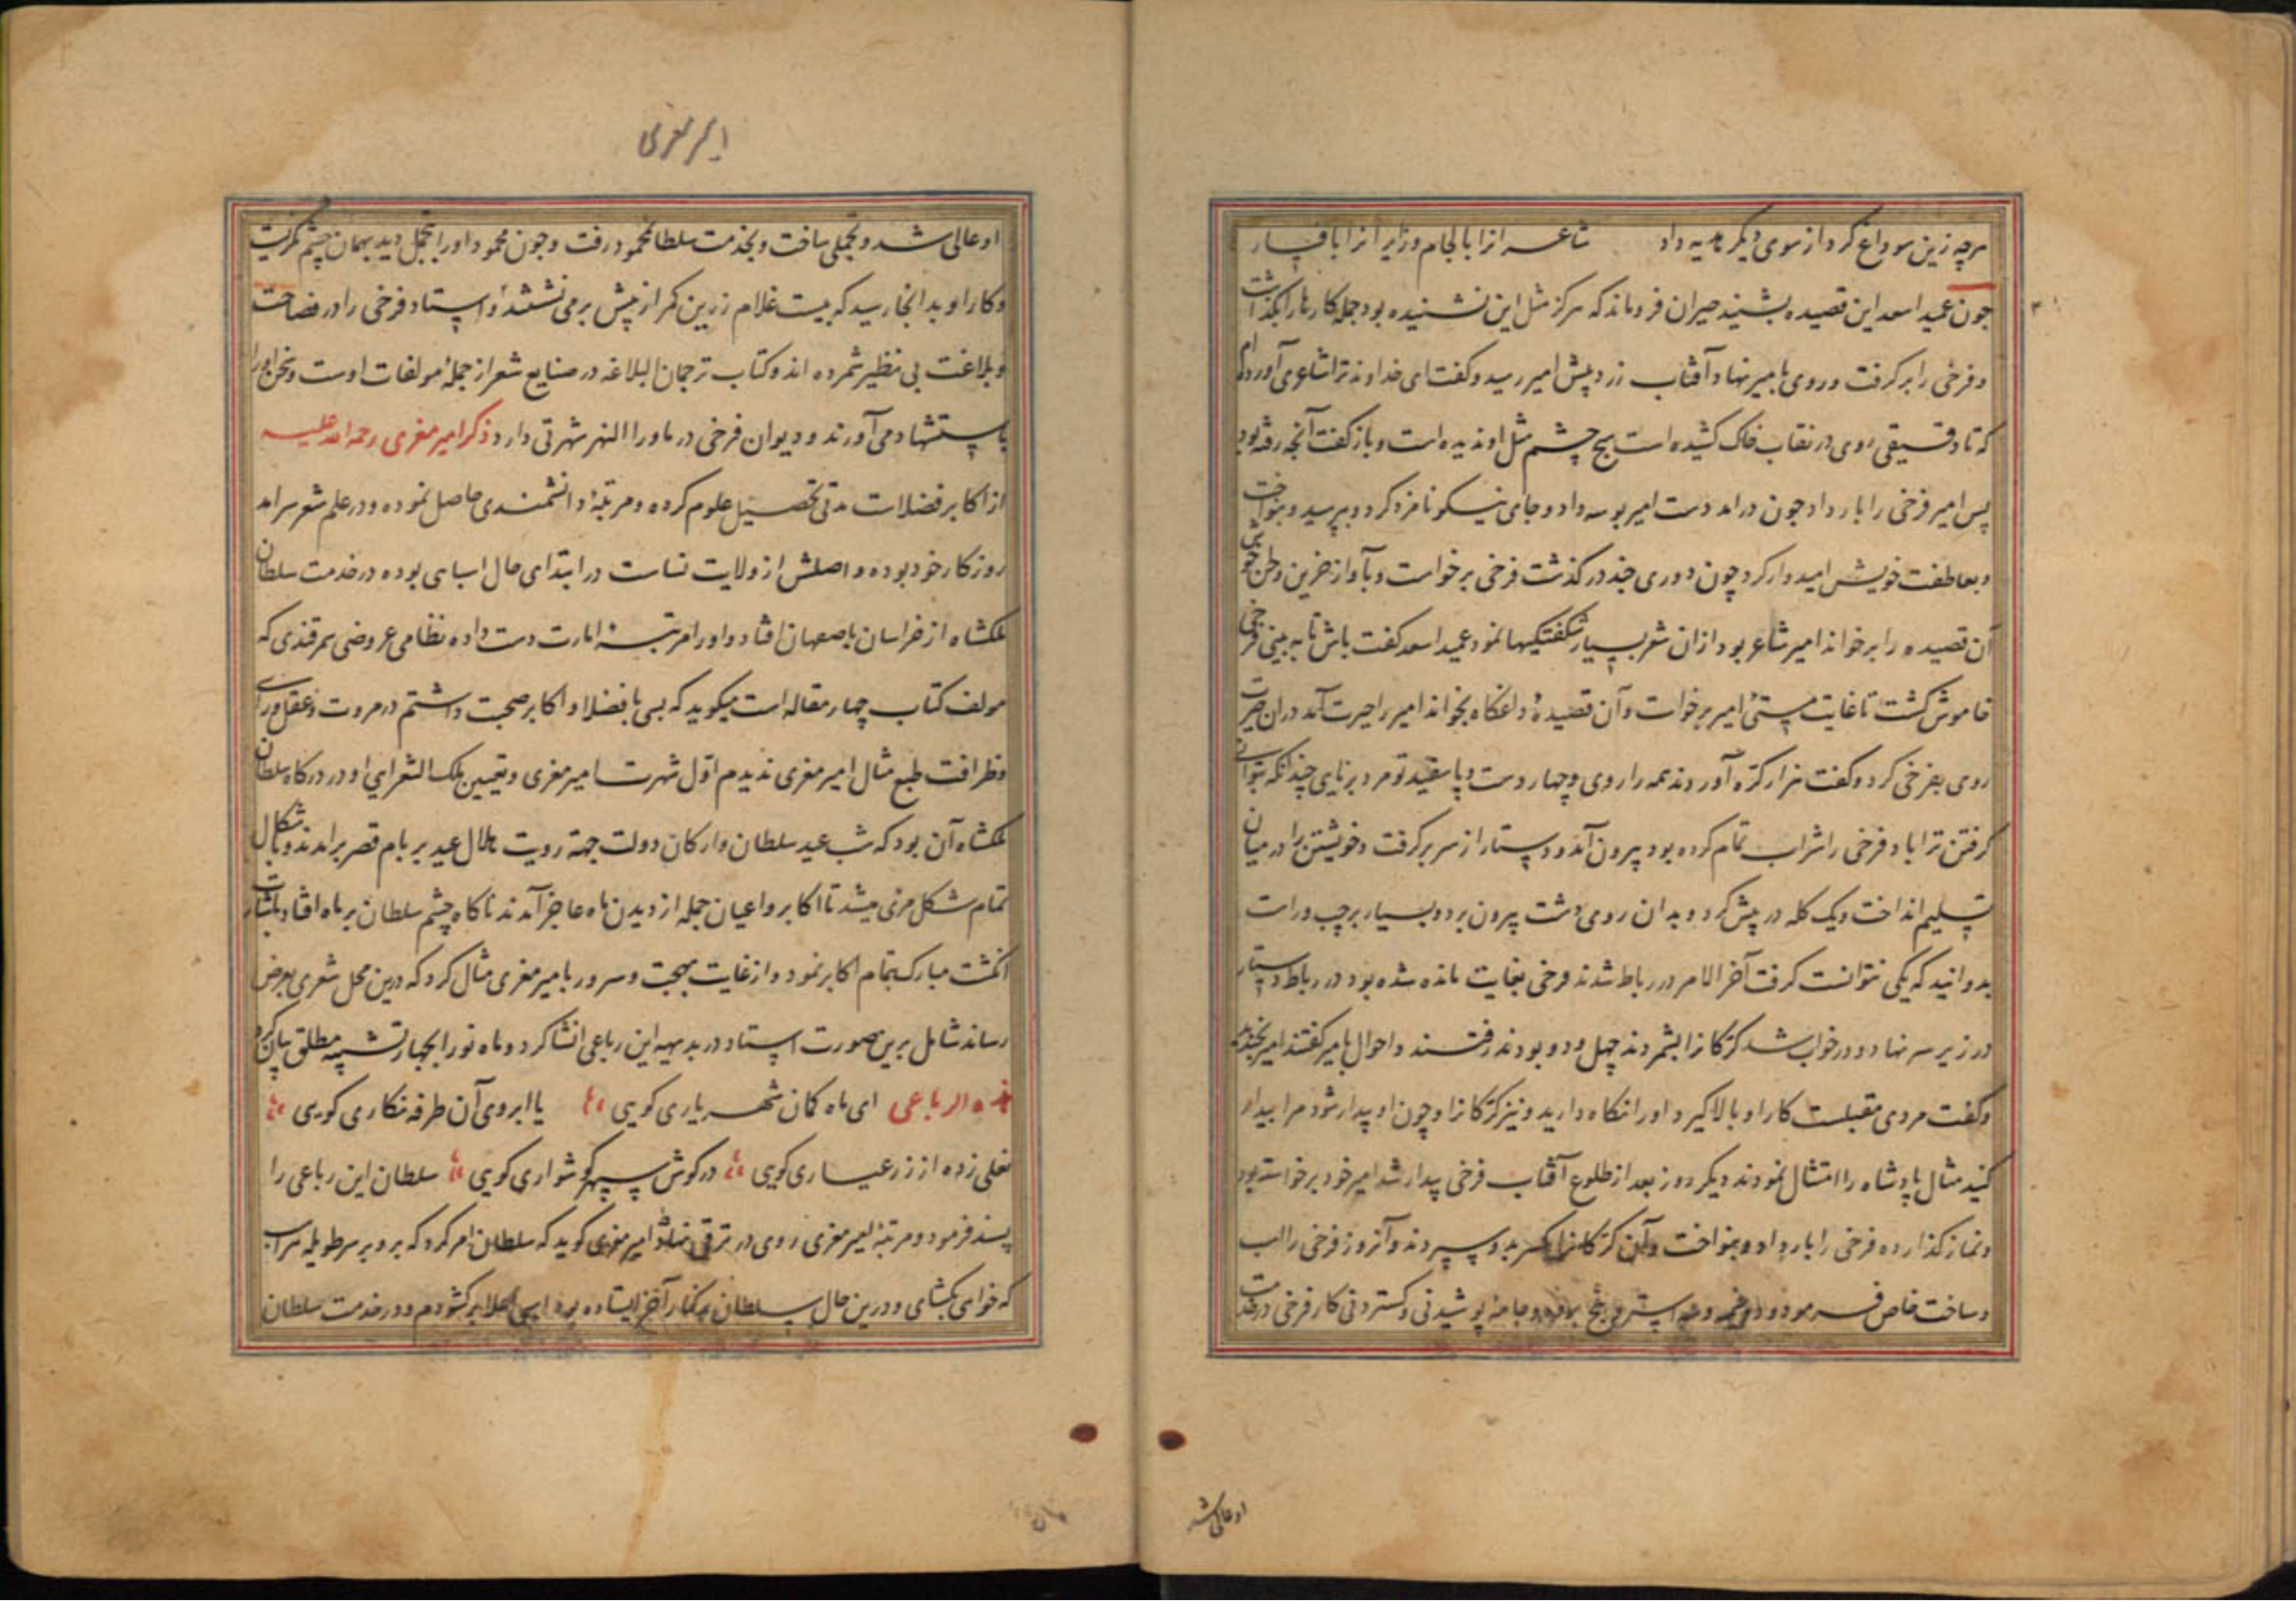 هرچه زین سو داغ کرد از سوی دیگر هدیه داد شاعرانرا با لجام و زایرانرا با فسار
چون عمید اسعد این قصیده بشنید حیران فروماند که هرگز مثل این نشنیده بود جمله کارها را بگذاشت
و فرخی را برگرفت و روی بامیر نهاد و آفتاب زرد پیش امیر رسید و گفت ای خداوند ترا شاعری آورده‌ام
که تا دقیقی روی در نقاب خاک کشیده است هیچ چشم مثل او ندیده است و باز گفت آنچه رفته بود
پس امیر فرخی را بار داد چون درامد دست امیر بوسه داد و جای نیکو نامزد کرد و بپرسید و بنواخت
و بعاطفت خویش امیدوار کرد چون دوری چند در گذشت فرخی برخواست و بآواز حزین و خوش
آن قصیده را برخواند امیر شاعر بود ازان شعر بسیار شگفتیها نمود عمید اسعد گفت باش تا به بینی فرخی
خاموش گشت تا غایت مستی امیر برخواست و آن قصیدهٔ داغگاه بخواند امیر را حیرت آمد دران حیرت
روی بفرخی کرد و گفت هزار کره آوردند همه را روی و چهار دست و پا سفید تو مرد برنایی چندانکه بتوانی
گرفتن ترا باد فرخی را شراب تمام کرده بود بیرون آمد و دستار از سر برگرفت و خویشتن را در میان
تسلیم انداخت و یک گله در پیش کرد و بدان روی دشت بیرون برد و بسیار بر چپ و راست
بدوانید که یکی نتوانست گرفت آخر الامر در رباط شدند فرخی بغایت مانده شده بود در رباط دستار
در زیر سر نهاد و در خواب شد کرکانرا بشمردند چهل و دو بودند رفتند و احوال بامیر گفتند امیر بخندید
و گفت مردی مقبلست کار او بالا گیرد او را نگاه دارید و نیز کرکانرا و چون او بیدار شود مرا بیدار
کنید مثال پادشاه را امتثال نمودند دیگر روز بعد از طلوع آفتاب فرخی بیدار شد امیر خود برخواسته بود
و نماز گذارده فرخی را بار داد و بنواخت و آن کرکانرا بدو سپردند و آنروز فرخی را اسب
و ساخت خاص فرمود و دو خیمه و سه استر و پنج برده و جامه پوشیدنی و گستردنی کار فرخی در خدمت
او عالی شد
امیر معزی
او عالی شد و تجملی ساخت و بخدمت سلطان محمود رفت و چون محمود او را بتجمل دید بهمان چشم نگریست
و کار او بدانجا رسید که بیست غلام زرین کمر از پیش برمی نشستند و استاد فرخی را در فصاحت
و بلاغت بی نظیر شمرده اند و کتاب ترجمان البلاغه در صنایع شعر از جملهٔ مولفات اوست و سخن او را
باستشهاد می آورند و دیوان فرخی در ماورا النهر شهرتی دارد ذکر امیر معزی رحمه الله علیه
از اکابر فضلاست مدتی تحصیل علوم کرده و مرتبهٔ دانشمندی حاصل نموده و در علم شعر سرامد
روزگار خود بوده و اصلش از ولایت نساست در ابتدای حال سپاهی بوده در خدمت سلطان
ملکشاه از خراسان باصفهان افتاد و او را مرتبه امارت دست داده نظامی عروضی سمرقندی که
مولف کتاب چهار مقاله است میگوید که بسی با فضلا و اکابر صحبت داشتم در مروت و عقل و رای
و ظرافت طبع مثال امیر معزی ندیدم اول شهرت امیر معزی و تعیین ملک الشعرایی او در درگاه سلطان
ملکشاه آن بود که شب عید سلطان و ارکان دولت جهة رویت هلال عید بر بام قصر برامدند و باشکال
تمام شکل مرئی میشد تا اکابر و اعیان جمله از دیدن ماه عاجز آمدند ناگاه چشم سلطان بر ماه افتاد باشارت
انگشت مبارک بتمام اکابر نمود و از غایت بهجت و سرور بامیر معزی مثال کرد که درین محل شعری بعرض
رساند شامل برین صورت استاد در بدیهه این رباعی انشا کرد و ماه نو را بچهار تشبیه مطلق بیان کرد
هذه الرباعی ای ماه کمان شهریاری گویی یا ابروی آن طرفه نگاری گویی
نعلی زده از زر عیاری گویی در گوش سپهر گوشواری گویی سلطان این رباعی را
پسند فرمود و مرتبه امیر معزی روی در ترقی نهاد امیر معزی گوید که سلطان امر کرد که برو بر سر طویله هر اسب
که خواهی بگشای و درین حال سلطان بر کنار آخر ایستاده بود اسبی برگشودم و در خدمت سلطان